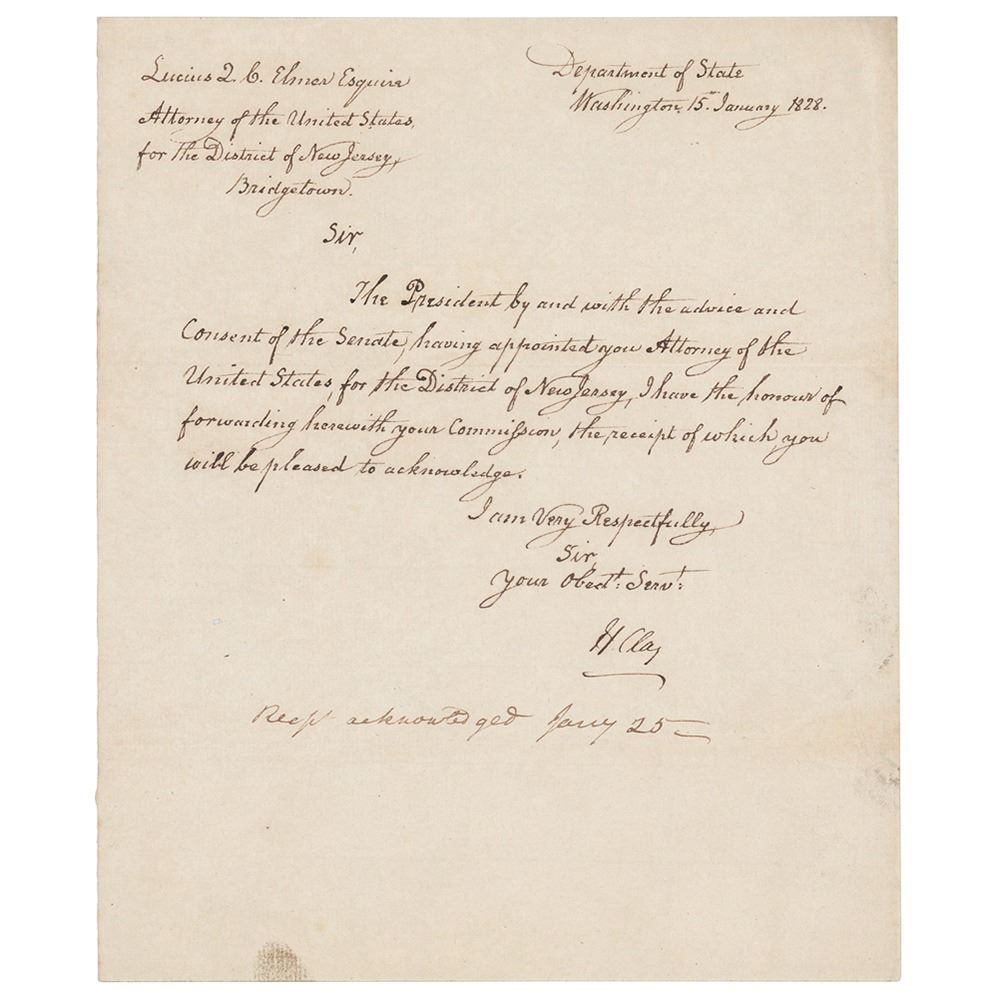 Lucius Q. C. Elmer Esquire
Attorney of the United States,
for the District of New Jersey,
Bridgetown.
Department of State
Washington, 15th January 1828.
Sir,
The President by and with the advice and
Consent of the Senate, having appointed you Attorney of the
United States, for the District of New Jersey, I have the honour of
forwarding herewith your Commission, the receipt of which, you
will be pleased to acknowledge.
I am Very Respectfully,
Sir,
Your Obedt: Servt:
H Clay
Recpt acknowledged Jany 25